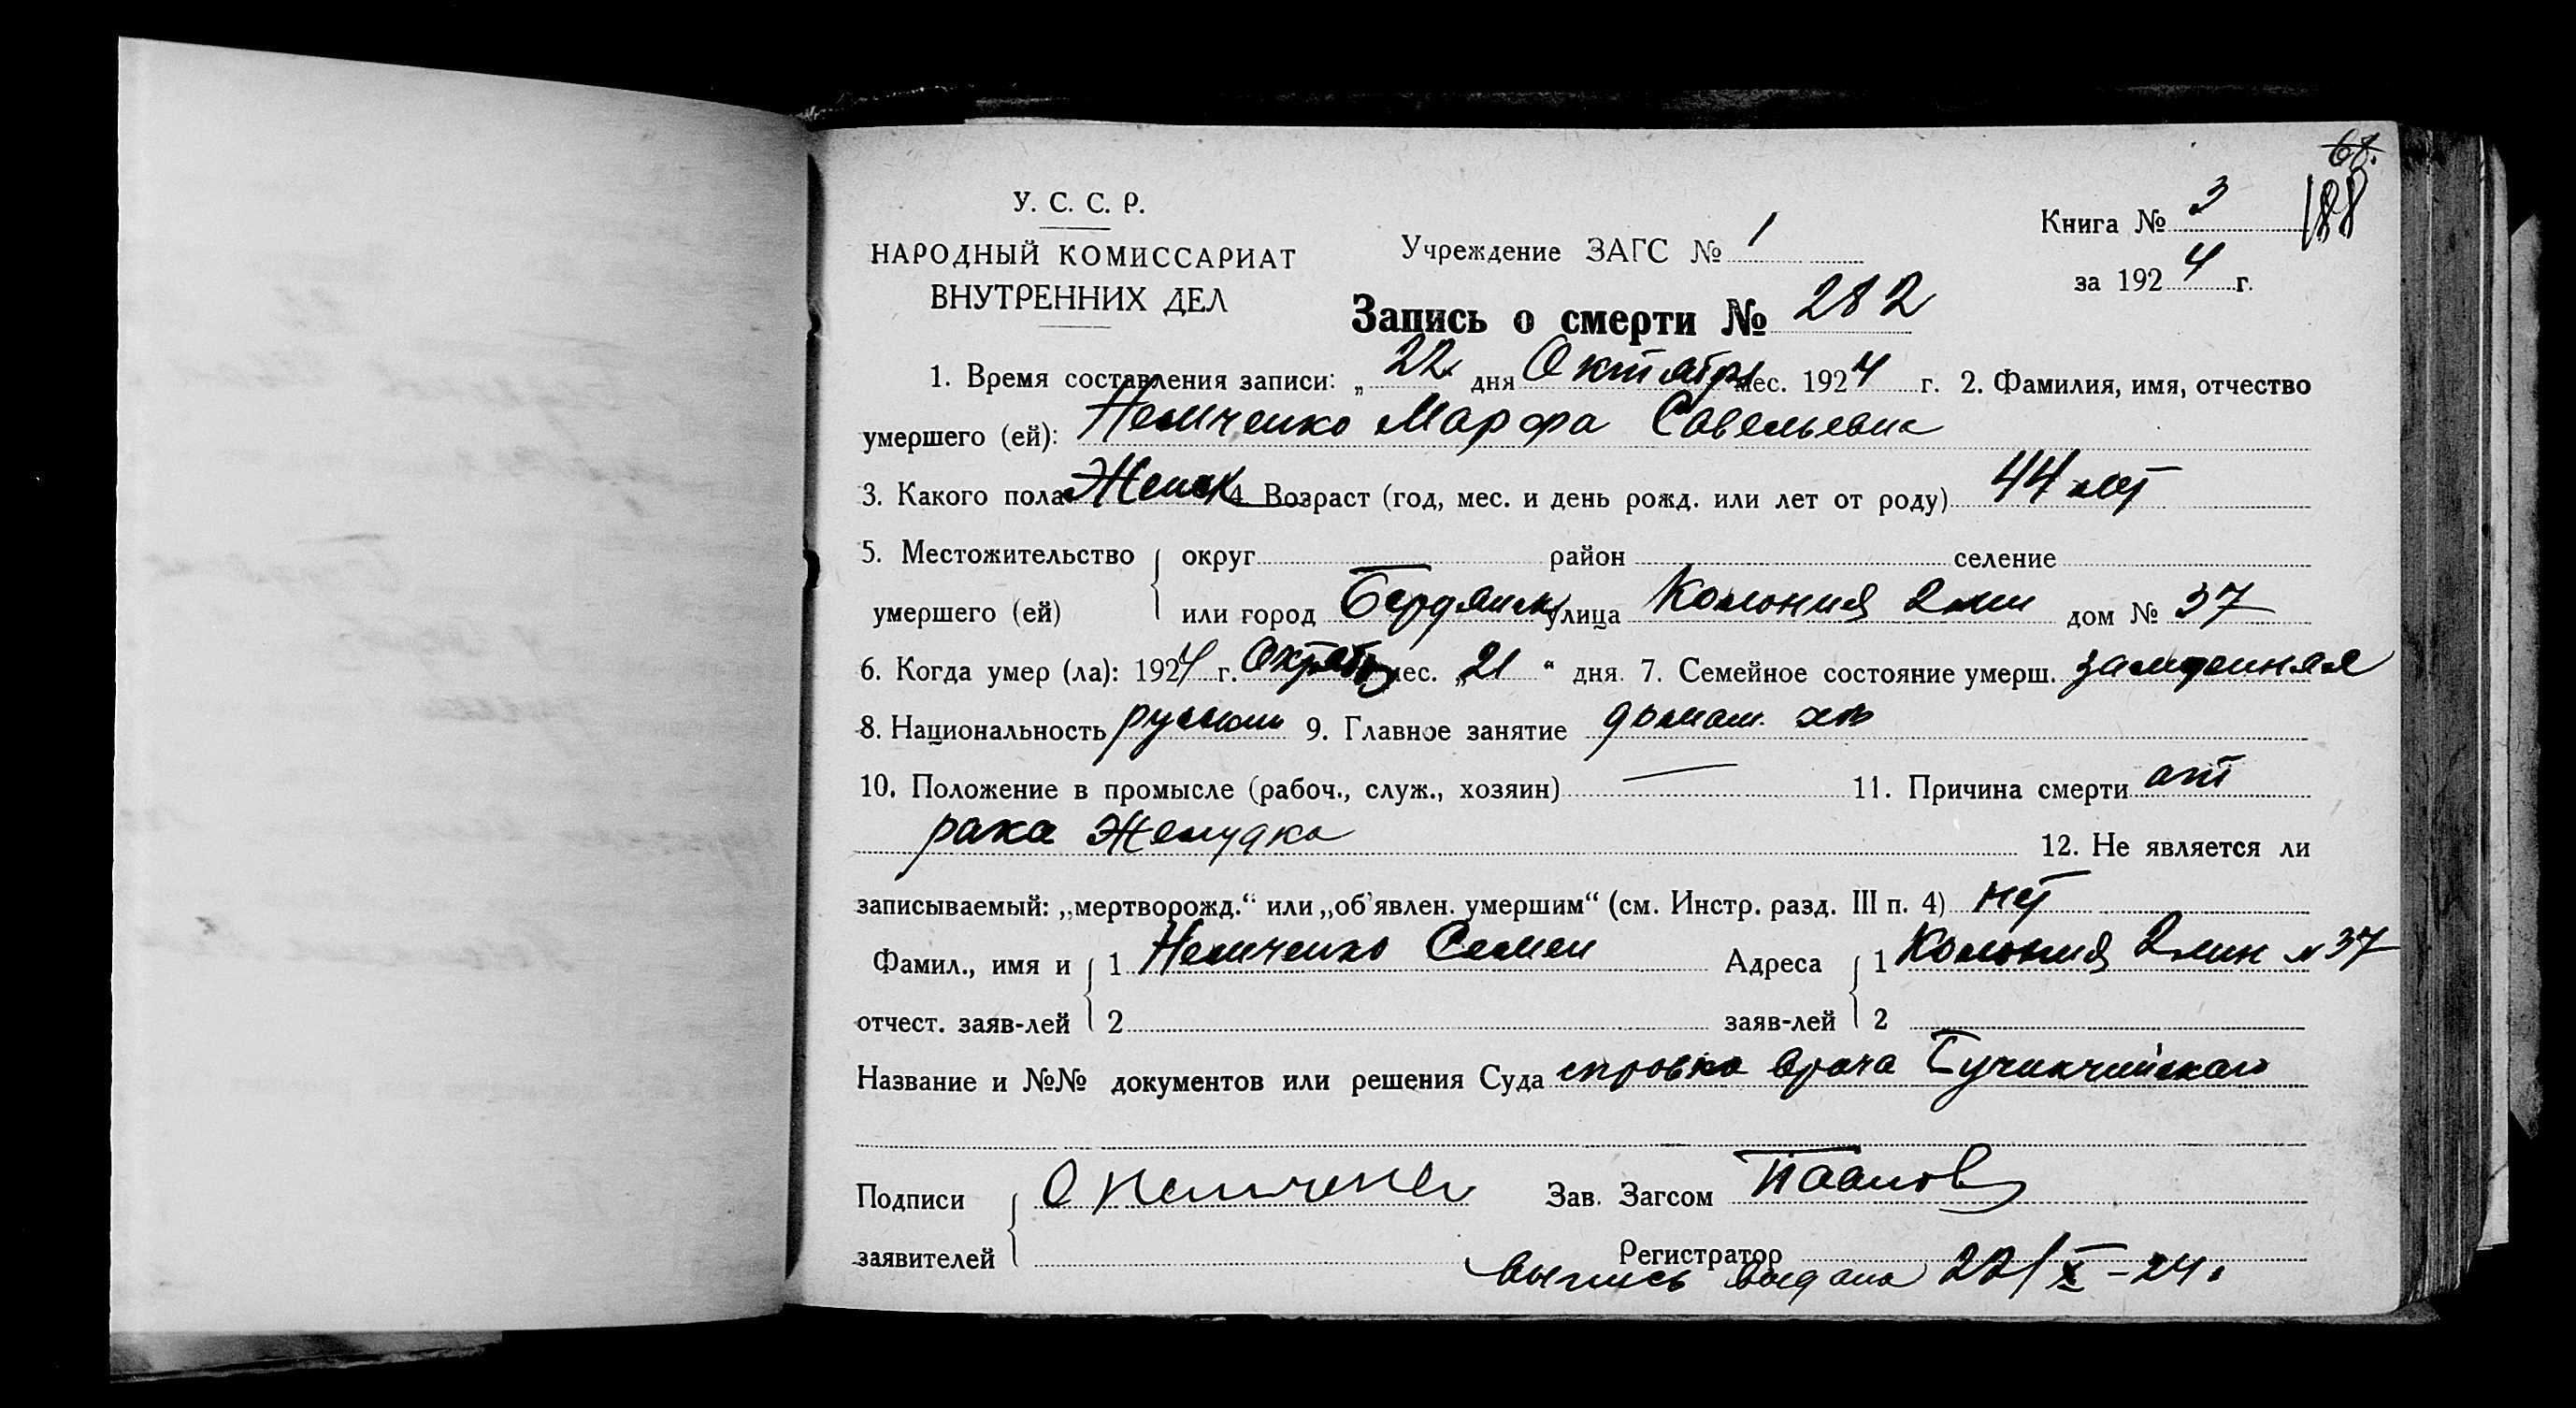 68.
188
У. С. С. Р.
НАРОДНЫЙ КОМИССАРИАТ
ВНУТРЕННИХ ДЕЛ
Учреждение ЗАГС № 1
Книга № 3
за 1924 г.
Запись о смерти № 282
1. Время составления записи: „ 22 дня Октябр мес. 1924 г. 2. Фамилия, имя, отчество
умершего (ей): Немченко Марфа Савельевна
3. Какого пола Женск 4. Возраст (год, мес. и день рожд. или лет от роду) 44 лет
5. Местожительство округ район селение
умершего (ей) или город Бердянск улица Колония 2 лин дом № 37
6. Когда умер (ла): 1924 г. Октябр мес. „21“ дня. 7. Семейное состояние умерш. замужняя
8. Национальность русская 9. Главное занятие домаш. хоз
10. Положение в промысле (рабоч., служ., хозяин) — 11. Причина смерти от
рака Желудка
12. Не является ли
записываемый: „мертворожд.“ или „об’явлен. умершим“ (см. Инстр. разд. III п. 4) нет
Фамил., имя и 1 Немченко Семен Адреса 1 Колония 2 лин № 37
отчест. заяв-лей 2 заяв-лей 2
Название и №№ документов или решения Суда справка врача
Подписи С Немченко Зав. Загсом Павлов
заявителей Регистратор
выпись выдана 22/X-24.